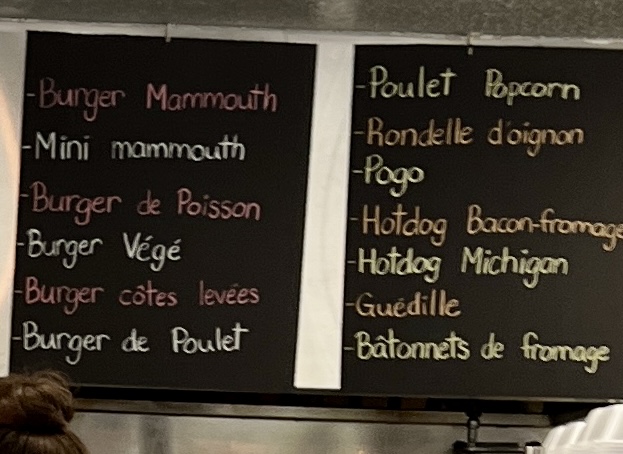 -Burger Mammouth
-Mini mammouth
-Burger de Poisson
-Burger Végé
-Burger côtes levées
-Burger de Poulet
-Poulet Popcorn
-Rondelle d'oignon
-Pogo
-Hotdog Bacon-fromage
-Hotdog Michigan
-Guédille
-Bâtonnets de fromage